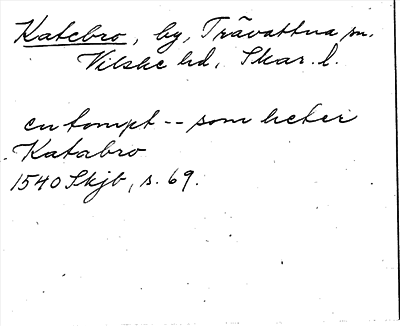 Katebro, by, Trävattna sn.
Vilske hd, Skar. l.
en tompt -- som heter
Katabro
1540 Skjb, s. 69.